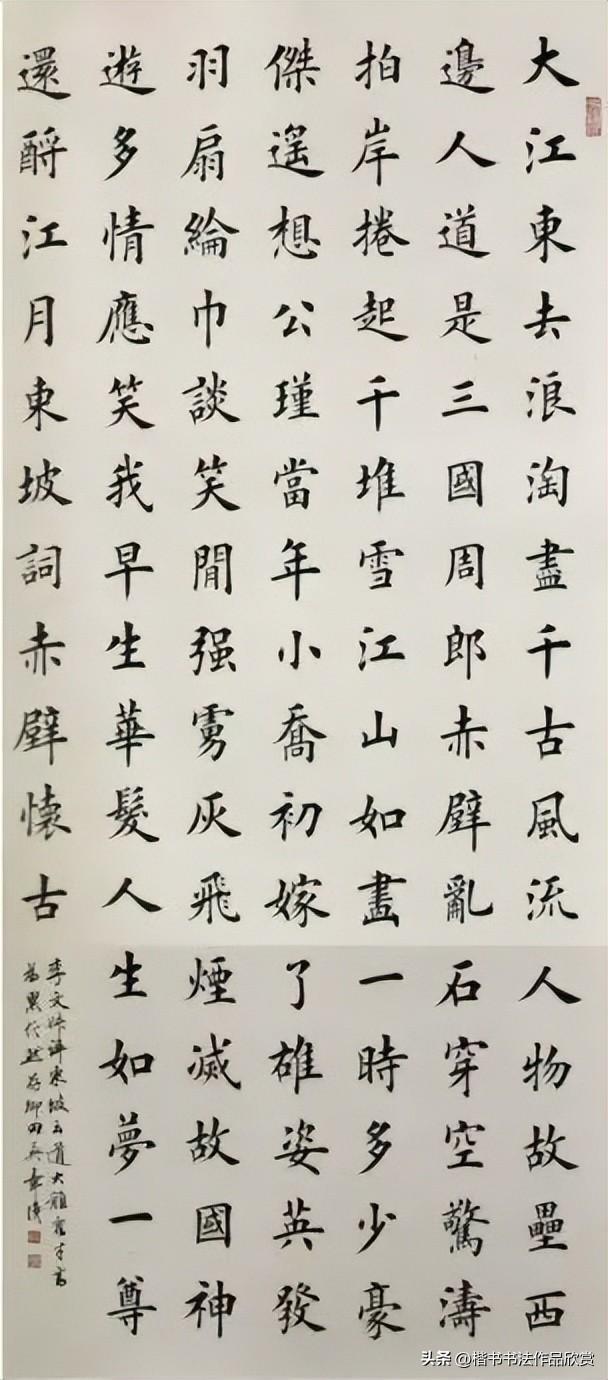 大江東去浪淘盡千古風流人物故壘西
邊人道是三國周郎赤壁亂石穿空驚濤
拍岸捲起千堆雪江山如畫一時多少豪
傑遥想公瑾當年小喬初嫁了雄姿英發
羽扇綸巾談笑閒强虜灰飛煙滅故國神
遊多情應笑我早生華髮人生如夢一尊
還酹江月東坡詞赤壁懷古
坡云道大難容才高
為累
头条 @楷书书法作品欣赏